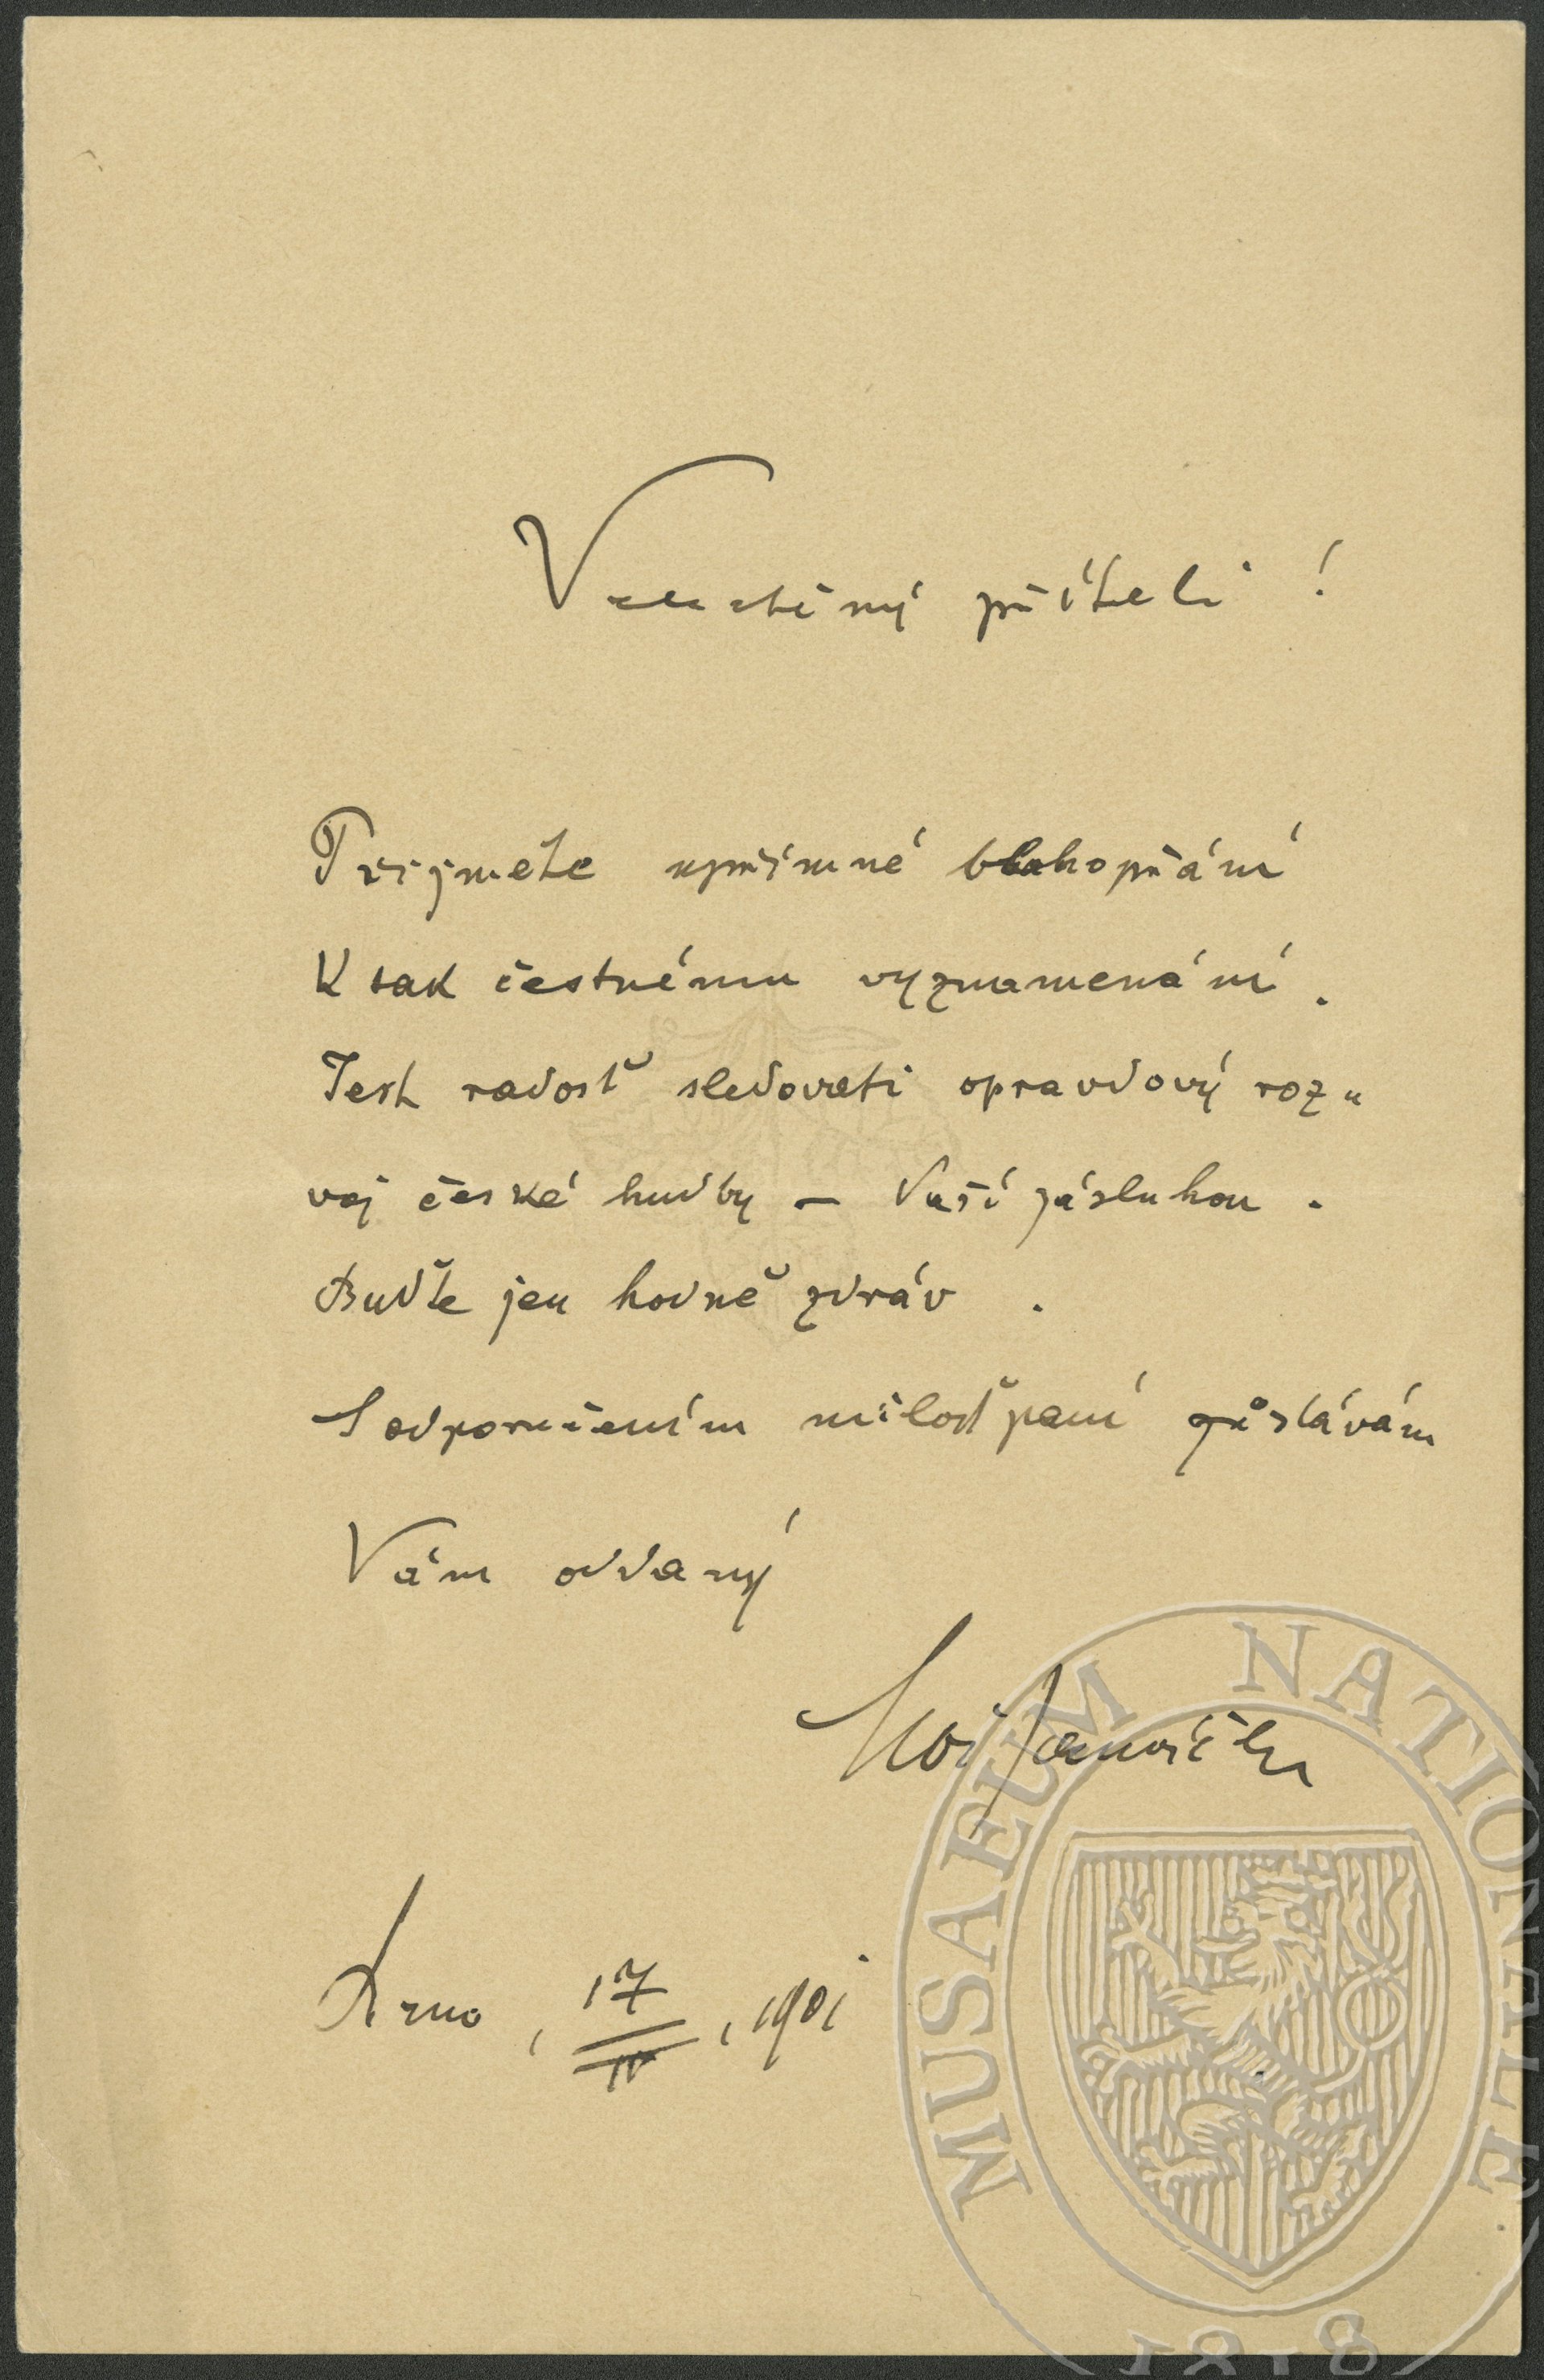 Velectěný příteli!
Přijmete upřímné blahopřání
K tak čestnému vyznamenání.
Jest radosť sledovati opravdový roz„
voj české hudby – Vaší zásluhou.
Buďte jen hodně zdráv.
S odporučením milosťpaní zůstávám
Vám oddaný
Leoš Janáček
Brno, 17/IV, 1901
MUSAEUM NATIONALE
1818